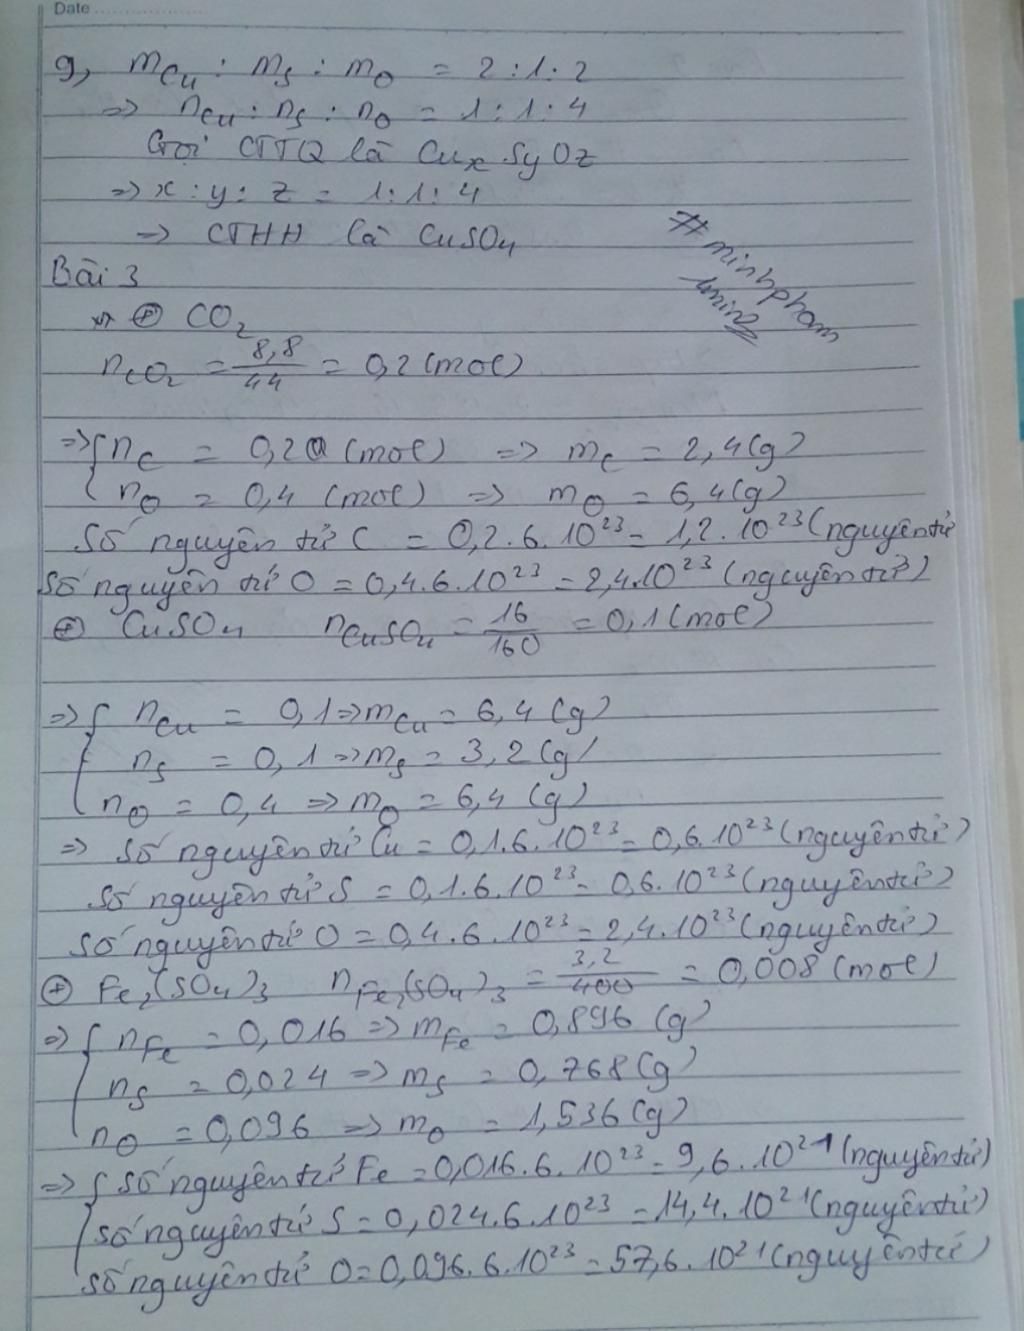 Date
g, mCu : mS : mO = 2 : 1 : 2
=> nCu : nS : nO = 1 : 1 : 4
Gọi CTTQ là CuxSyOz
=> x : y : z = 1 : 1 : 4
=> CTHH là CuSO4
#minhpham
Bài 3
⊕ CO2
nCO2 = 8,8/44 = 0,2 (mol)
=> { nC = 0,20 (mol) => mC = 2,4 (g)
nO = 0,4 (mol) => mO = 6,4 (g)
Số nguyên tử C = 0,2 . 6 . 10^23 = 1,2 . 10^23 (nguyên tử
Số nguyên tử O = 0,4 . 6 . 10^23 = 2,4 . 10^23 (nguyên tử)
⊕ CuSO4 nCuSO4 = 16/160 = 0,1 (mol)
=> { nCu = 0,1 => mCu = 6,4 (g)
nS = 0,1 => mS = 3,2 (g)
nO = 0,4 => mO = 6,4 (g)
=> Số nguyên tử Cu = 0,1 . 6 . 10^23 = 0,6 . 10^23 (nguyên tử)
Số nguyên tử S = 0,1 . 6 . 10^23 = 0,6 . 10^23 (nguyên tử)
Số nguyên tử O = 0,4 . 6 . 10^23 = 2,4 . 10^23 (nguyên tử)
⊕ Fe2(SO4)3 nFe2(SO4)3 = 3,2/400 = 0,008 (mol)
=> { nFe = 0,016 => mFe = 0,896 (g)
nS = 0,024 => mS = 0,768 (g)
nO = 0,096 => mO = 1,536 (g)
=> { Số nguyên tử Fe = 0,016 . 6 . 10^23 = 9,6 . 10^21 (nguyên tử)
số nguyên tử S = 0,024 . 6 . 10^23 = 14,4 . 10^21 (nguyên tử)
số nguyên tử O = 0,096 . 6 . 10^23 = 57,6 . 10^21 (nguyên tử)